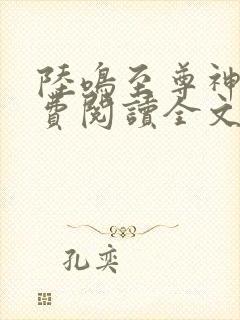 陸鳴至尊神
費閱讀全文
孔奕